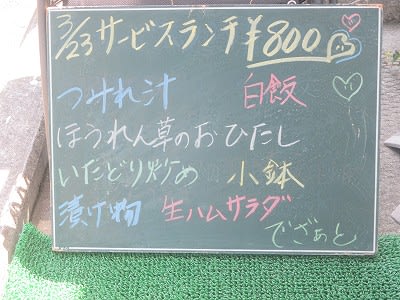 3/23 サービスランチ ¥800
つみれ汁 白飯
ほうれん草のおひたし
いたどり炒め 小鉢
漬け物 生ハムサラダ
でざぁと